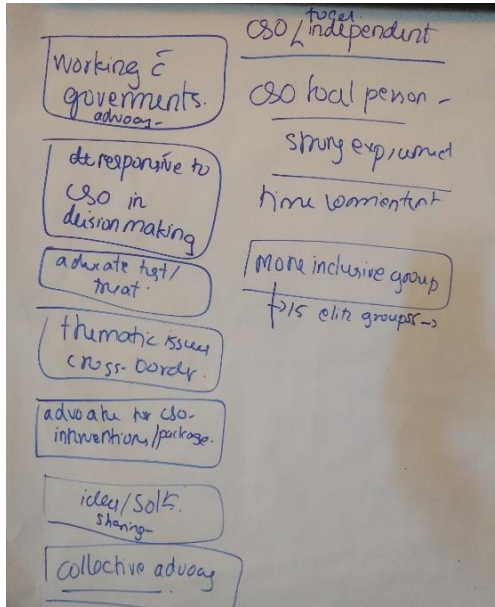 working c̄
governments.
advocacy
responsive to
CSO in
decision making
advocate test/
treat
thematic issues
cross-border.
advocate for CSO-
interventions/package.
idea/
sharing
collective advocacy
CSO/independent
CSO focal person -
strong exp,
time
more inclusive group
→ 15 elite groups →